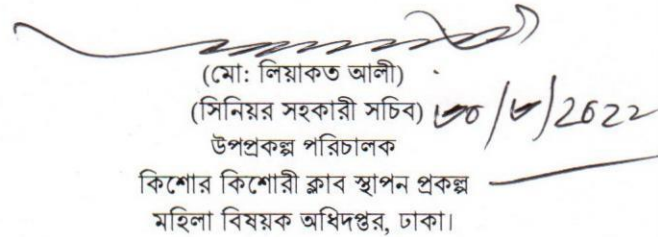 (মো: লিয়াকত আলী)
(সিনিয়র সহকারী সচিব)
উপপ্রকল্প পরিচালক
কিশোর কিশোরী ক্লাব স্থাপন প্রকল্প
মহিলা বিষয়ক অধিদপ্তর, ঢাকা।